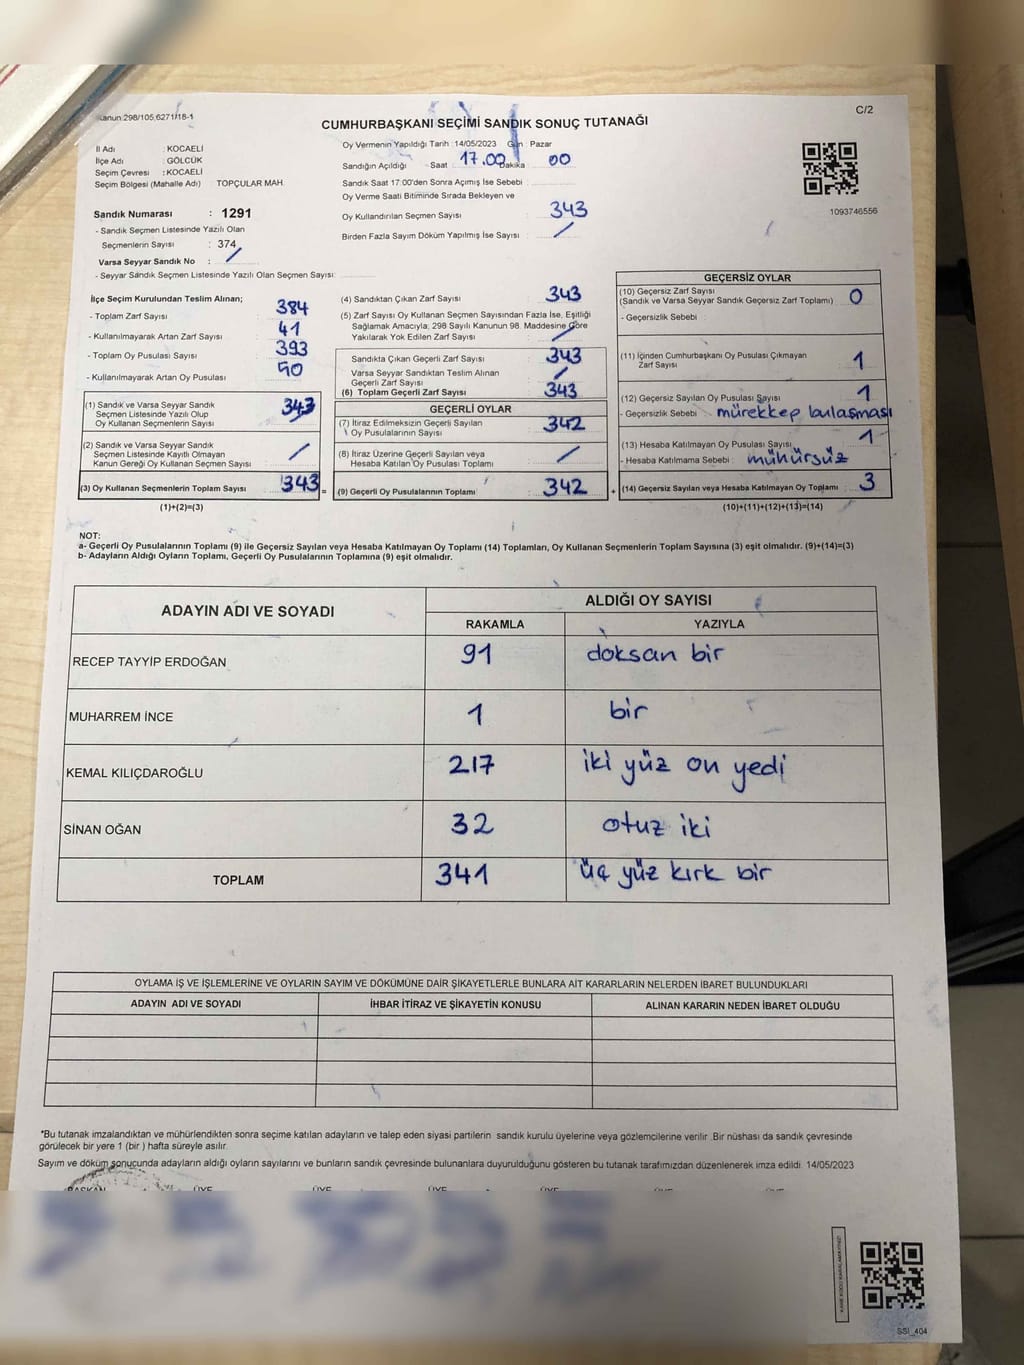 Kanun:298/105,6271/18-1
C/2
CUMHURBAŞKANI SEÇİMİ SANDIK SONUÇ TUTANAĞI
İl Adı : KOCAELİ
İlçe Adı : GÖLCÜK
Seçim Çevresi : KOCAELİ
Seçim Bölgesi (Mahalle Adı) TOPÇULAR MAH.
Sandık Numarası : 1291
- Sandık Seçmen Listesinde Yazılı Olan
Seçmenlerin Sayısı : 374
Varsa Seyyar Sandık No : /
- Seyyar Sandık Seçmen Listesinde Yazılı Olan Seçmen Sayısı:
Oy Vermenin Yapıldığı Tarih :14/05/2023 Gün : Pazar
Sandığın Açıldığı Saat 17.00 Dakika 00
Sandık Saat 17:00'den Sonra Açımış İse Sebebi :
Oy Verme Saati Bitiminde Sırada Bekleyen ve
Oy Kullandırılan Seçmen Sayısı 343
Birden Fazla Sayım Döküm Yapılmış İse Sayısı : /
1093746556
İlçe Seçim Kurulundan Teslim Alınan;
- Toplam Zarf Sayısı 384
- Kullanılmayarak Artan Zarf Sayısı 41
- Toplam Oy Pusulası Sayısı 393
- Kullanılmayarak Artan Oy Pusulası 50
(1) Sandık ve Varsa Seyyar Sandık
Seçmen Listesinde Yazılı Olup
Oy Kullanan Seçmenlerin Sayısı 343
(2) Sandık ve Varsa Seyyar Sandık
Seçmen Listesinde Kayıtlı Olmayan
Kanun Gereği Oy Kullanan Seçmen Sayısı /
(3) Oy Kullanan Seçmenlerin Toplam Sayısı 343 =
(1)+(2)=(3)
(4) Sandıktan Çıkan Zarf Sayısı 343
(5) Zarf Sayısı Oy Kullanan Seçmen Sayısından Fazla İse, Eşitliği
Sağlamak Amacıyla; 298 Sayılı Kanunun 98. Maddesine Göre
Yakılarak Yok Edilen Zarf Sayısı /
Sandıkta Çıkan Geçerli Zarf Sayısı 343
Varsa Seyyar Sandıktan Teslim Alınan
Geçerli Zarf Sayısı /
(6) Toplam Geçerli Zarf Sayısı 343
GEÇERLİ OYLAR
(7) İtiraz Edilmeksizin Geçerli Sayılan
Oy Pusulalarının Sayısı 342
(8) İtiraz Üzerine Geçerli Sayılan veya
Hesaba Katılan Oy Pusulası Toplamı /
(9) Geçerli Oy Pusulalarının Toplamı 342 +
GEÇERSİZ OYLAR
(10) Geçersiz Zarf Sayısı
(Sandık ve Varsa Seyyar Sandık Geçersiz Zarf Toplamı) 0
- Geçersizlik Sebebi :
(11) İçinden Cumhurbaşkanı Oy Pusulası Çıkmayan
Zarf Sayısı 1
(12) Geçersiz Sayılan Oy Pusulası Sayısı 1
- Geçersizlik Sebebi : mürekkep bulaşması
(13) Hesaba Katılmayan Oy Pusulası Sayısı 1
- Hesaba Katılmama Sebebi : mühürsüz
(14) Geçersiz Sayılan veya Hesaba Katılmayan Oy Toplamı 3
(10)+(11)+(12)+(13)=(14)
NOT:
a- Geçerli Oy Pusulalarının Toplamı (9) ile Geçersiz Sayılan veya Hesaba Katılmayan Oy Toplamı (14) Toplamları, Oy Kullanan Seçmenlerin Toplam Sayısına (3) eşit olmalıdır. (9)+(14)=(3)
b- Adayların Aldığı Oyların Toplamı, Geçerli Oy Pusulalarının Toplamına (9) eşit olmalıdır.
ADAYIN ADI VE SOYADI ALDIĞI OY SAYISI
RAKAMLA YAZIYLA
RECEP TAYYİP ERDOĞAN 91 doksan bir
MUHARREM İNCE 1 bir
KEMAL KILIÇDAROĞLU 217 iki yüz on yedi
SİNAN OĞAN 32 otuz iki
TOPLAM 341 üç yüz kırk bir
OYLAMA İŞ VE İŞLEMLERİNE VE OYLARIN SAYIM VE DÖKÜMÜNE DAİR ŞİKAYETLERLE BUNLARA AİT KARARLARIN NELERDEN İBARET BULUNDUKLARI
ADAYIN ADI VE SOYADI İHBAR İTİRAZ VE ŞİKAYETİN KONUSU ALINAN KARARIN NEDEN İBARET OLDUĞU
*Bu tutanak imzalandıktan ve mühürlendikten sonra seçime katılan adayların ve talep eden siyasi partilerin sandık kurulu üyelerine veya gözlemcilerine verilir. Bir nüshası da sandık çevresinde
görülecek bir yere 1 (bir ) hafta süreyle asılır.
Sayım ve döküm sonucunda adayların aldığı oyların sayılarını ve bunların sandık çevresinde bulunanlara duyurulduğunu gösteren bu tutanak tarafımızdan düzenlenerek imza edildi. 14/05/2023
BAŞKAN ÜYE ÜYE ÜYE ÜYE ÜYE ÜYE
SSI_404